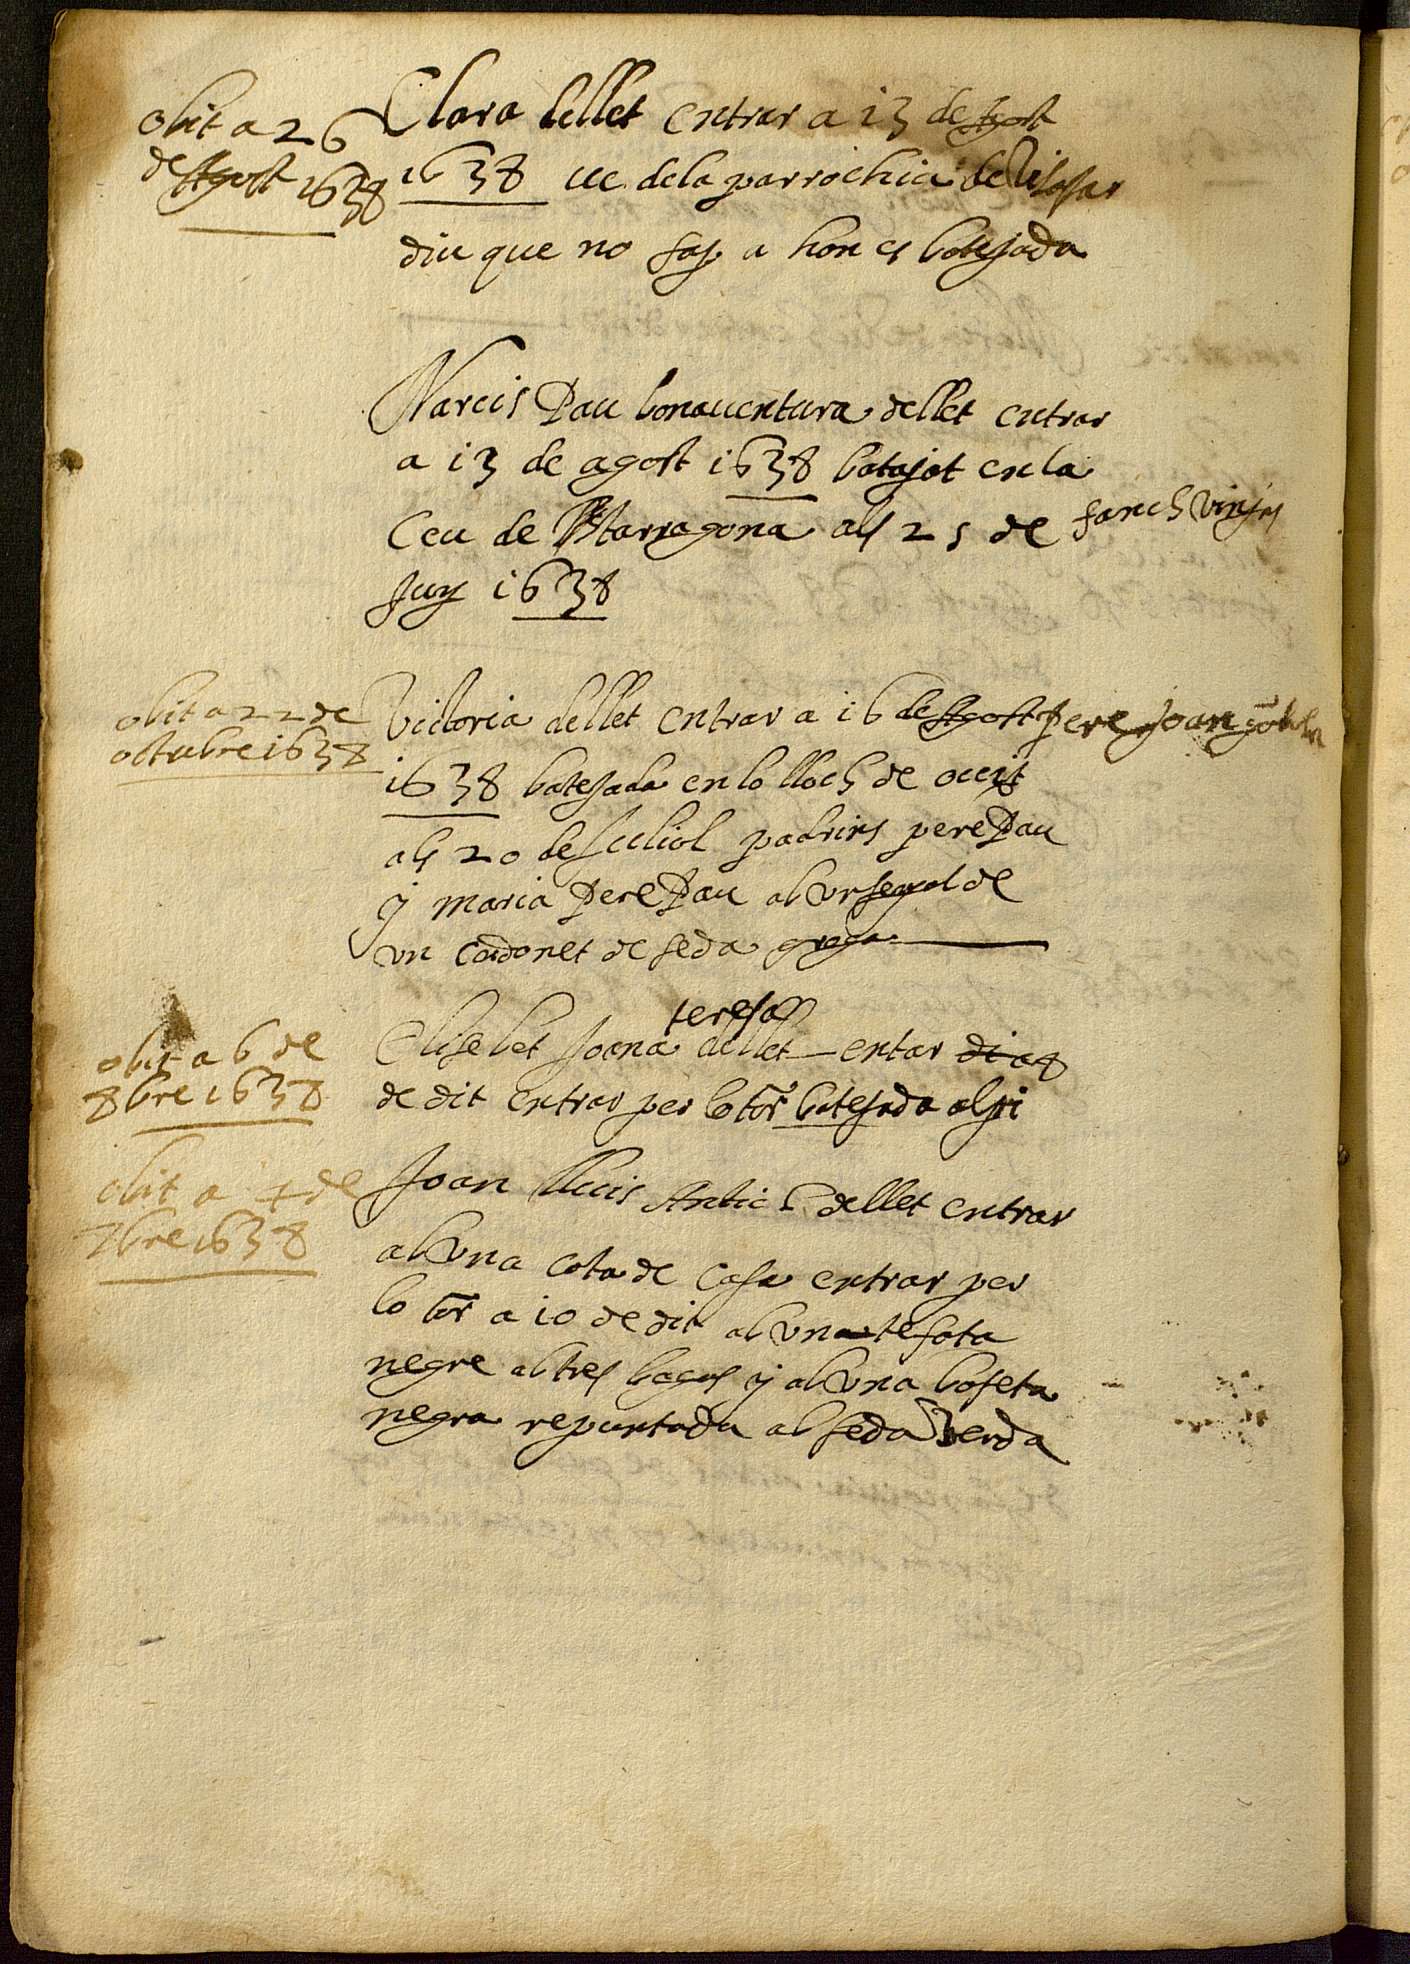 obit a 26
de Agost 1638
Clara dellet entrar a 13 de Agost
1638 ve dela parrochia de Vilasar
diu que no sap a hon es batejada
Narcis Pau bonaventura dellet entrar
a 13 de agost 1638 batejat en la
Ceu de tarragona als 25 de
Juny 1638
obit a 22 de
octubre 1638
Victoria dellet entrar a 16 de Agost Pere Joan
1638 batejada en lo lloch de
als 20 de Juliol padrins pere Pau
y maria Pere Pau ab un senyal de
un cordonet de seda groga
obit a 6 de
8bre 1638
teresa
Elisebet Joana dellet entar
de dit entrar per lo torn batejada al pi
obit a 4 de
7bre 1638
Joan lluis Antic dellet entrar
ab una cota de casa entrar per
lo torn a 10 de dit ab una
negre ab tres y ab una boseta
negra repuntada ab seda verda